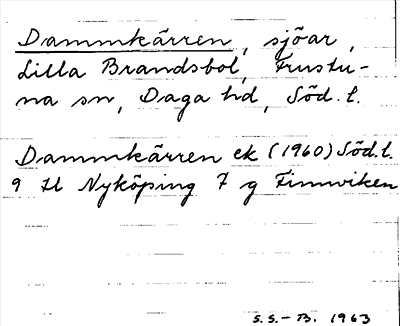 Dammkärren, sjöar,
Lilla Brandsbol, Frustu-
na sn, Daga hd, Söd. l.
Dammkärren ek (1960) Söd. l.
9 H Nyköping 7 g Finnviken
S.S.-B. 1963